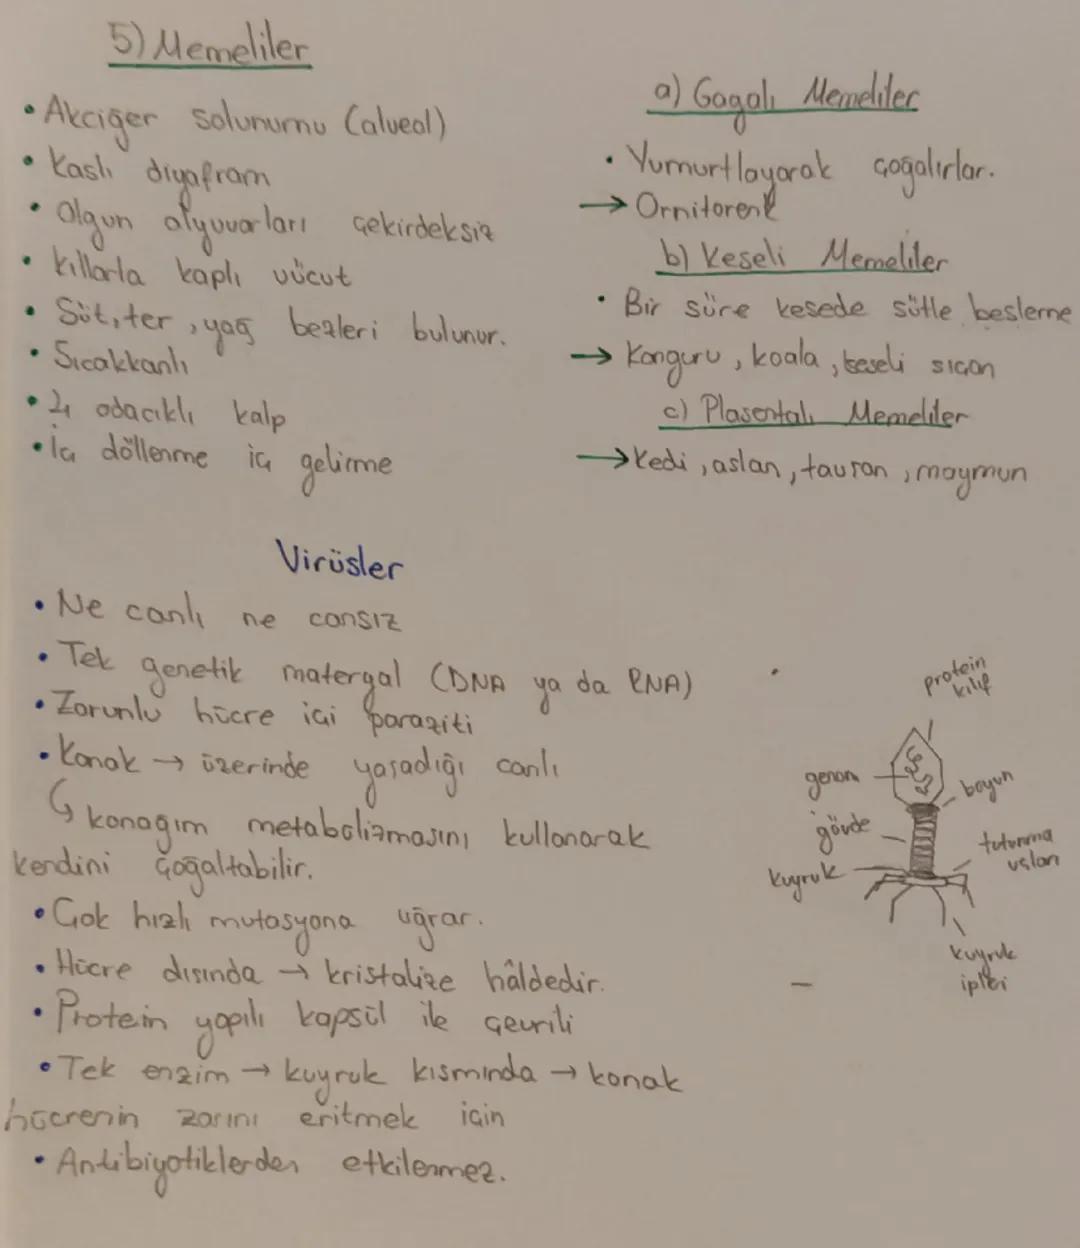 5) Memeliler
• Akciğer solunumu (alveol)
• Kaslı diyafram
• Olgun alyuvarları çekirdeksiz
• Kıllarla kaplı vücut
• Süt, ter, yağ bezleri bulunur.
• Sıcakkanlı
• 4 odacıklı kalp
• İç döllenme iç gelişme
a) Gagalı Memeliler
• Yumurtlayarak çoğalırlar.
→ Ornitorenk
b) Keseli Memeliler
• Bir süre kesede sütle besleme
→ Kanguru, koala, keseli sıçan
c) Plasentalı Memeliler
→ Kedi, aslan, tavşan, maymun
Virüsler
• Ne canlı ne cansız
• Tek genetik materyal (DNA ya da RNA)
• Zorunlu hücre içi paraziti
• Konak → üzerinde yaşadığı canlı
↳ konağım metabolizmasını kullanarak
kendini çoğaltabilir.
• Çok hızlı mutasyona uğrar.
• Hücre dışında → kristalize hâldedir.
• Protein yapılı kapsül ile çevrili
• Tek enzim → kuyruk kısmında → konak
hücrenin zarını eritmek için
• Antibiyotiklerden etkilenmez.
protein
kılıf
genom
boyun
gövde
tutunma
uçları
kuyruk
kuyruk
ipleri